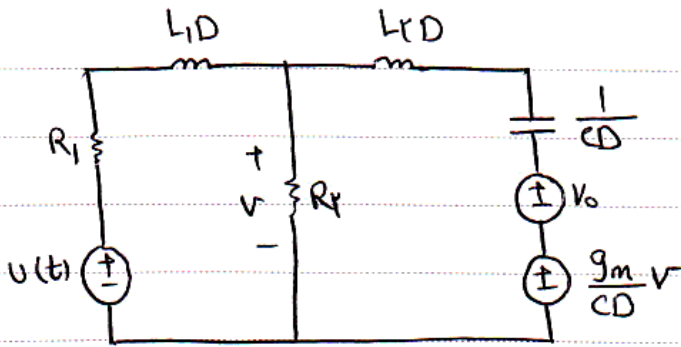 L₁D
L۲D
R₁
+
V
-
R۲
1/CD
V₀
U(t)
+
-
gm/CD V